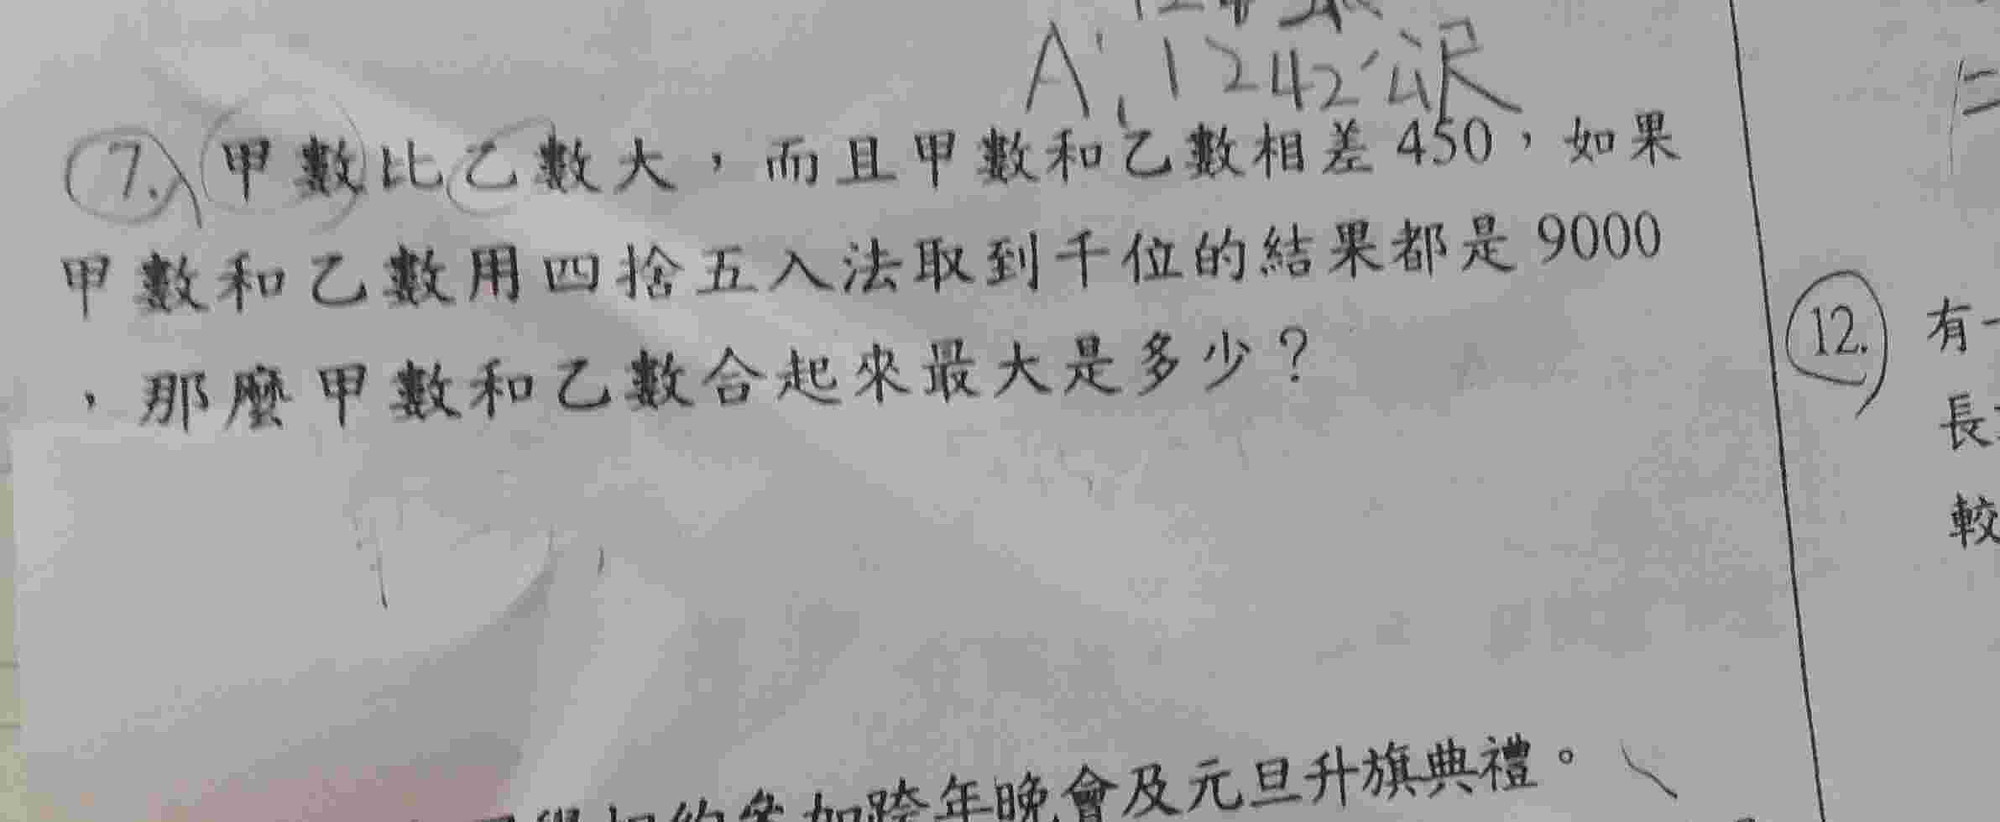 A:1242公尺
7. 甲數比乙數大,而且甲數和乙數相差450,如果
甲數和乙數用四捨五入法取到千位的結果都是9000
,那麼甲數和乙數合起來最大是多少?
參加跨年晚會及元旦升旗典禮。
12. 有一
長
較